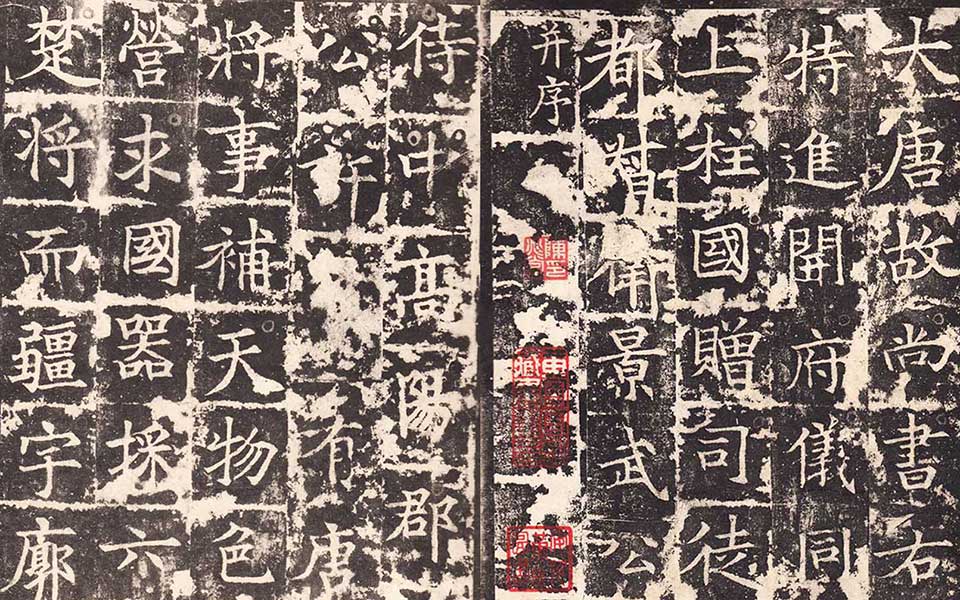 大唐故尚書右
特進開府儀同
上柱國贈司徒
都督衛景武公
并序
侍中高陽郡
公許有唐
將事補天物色
營求國器採六
楚將而疆宇廓